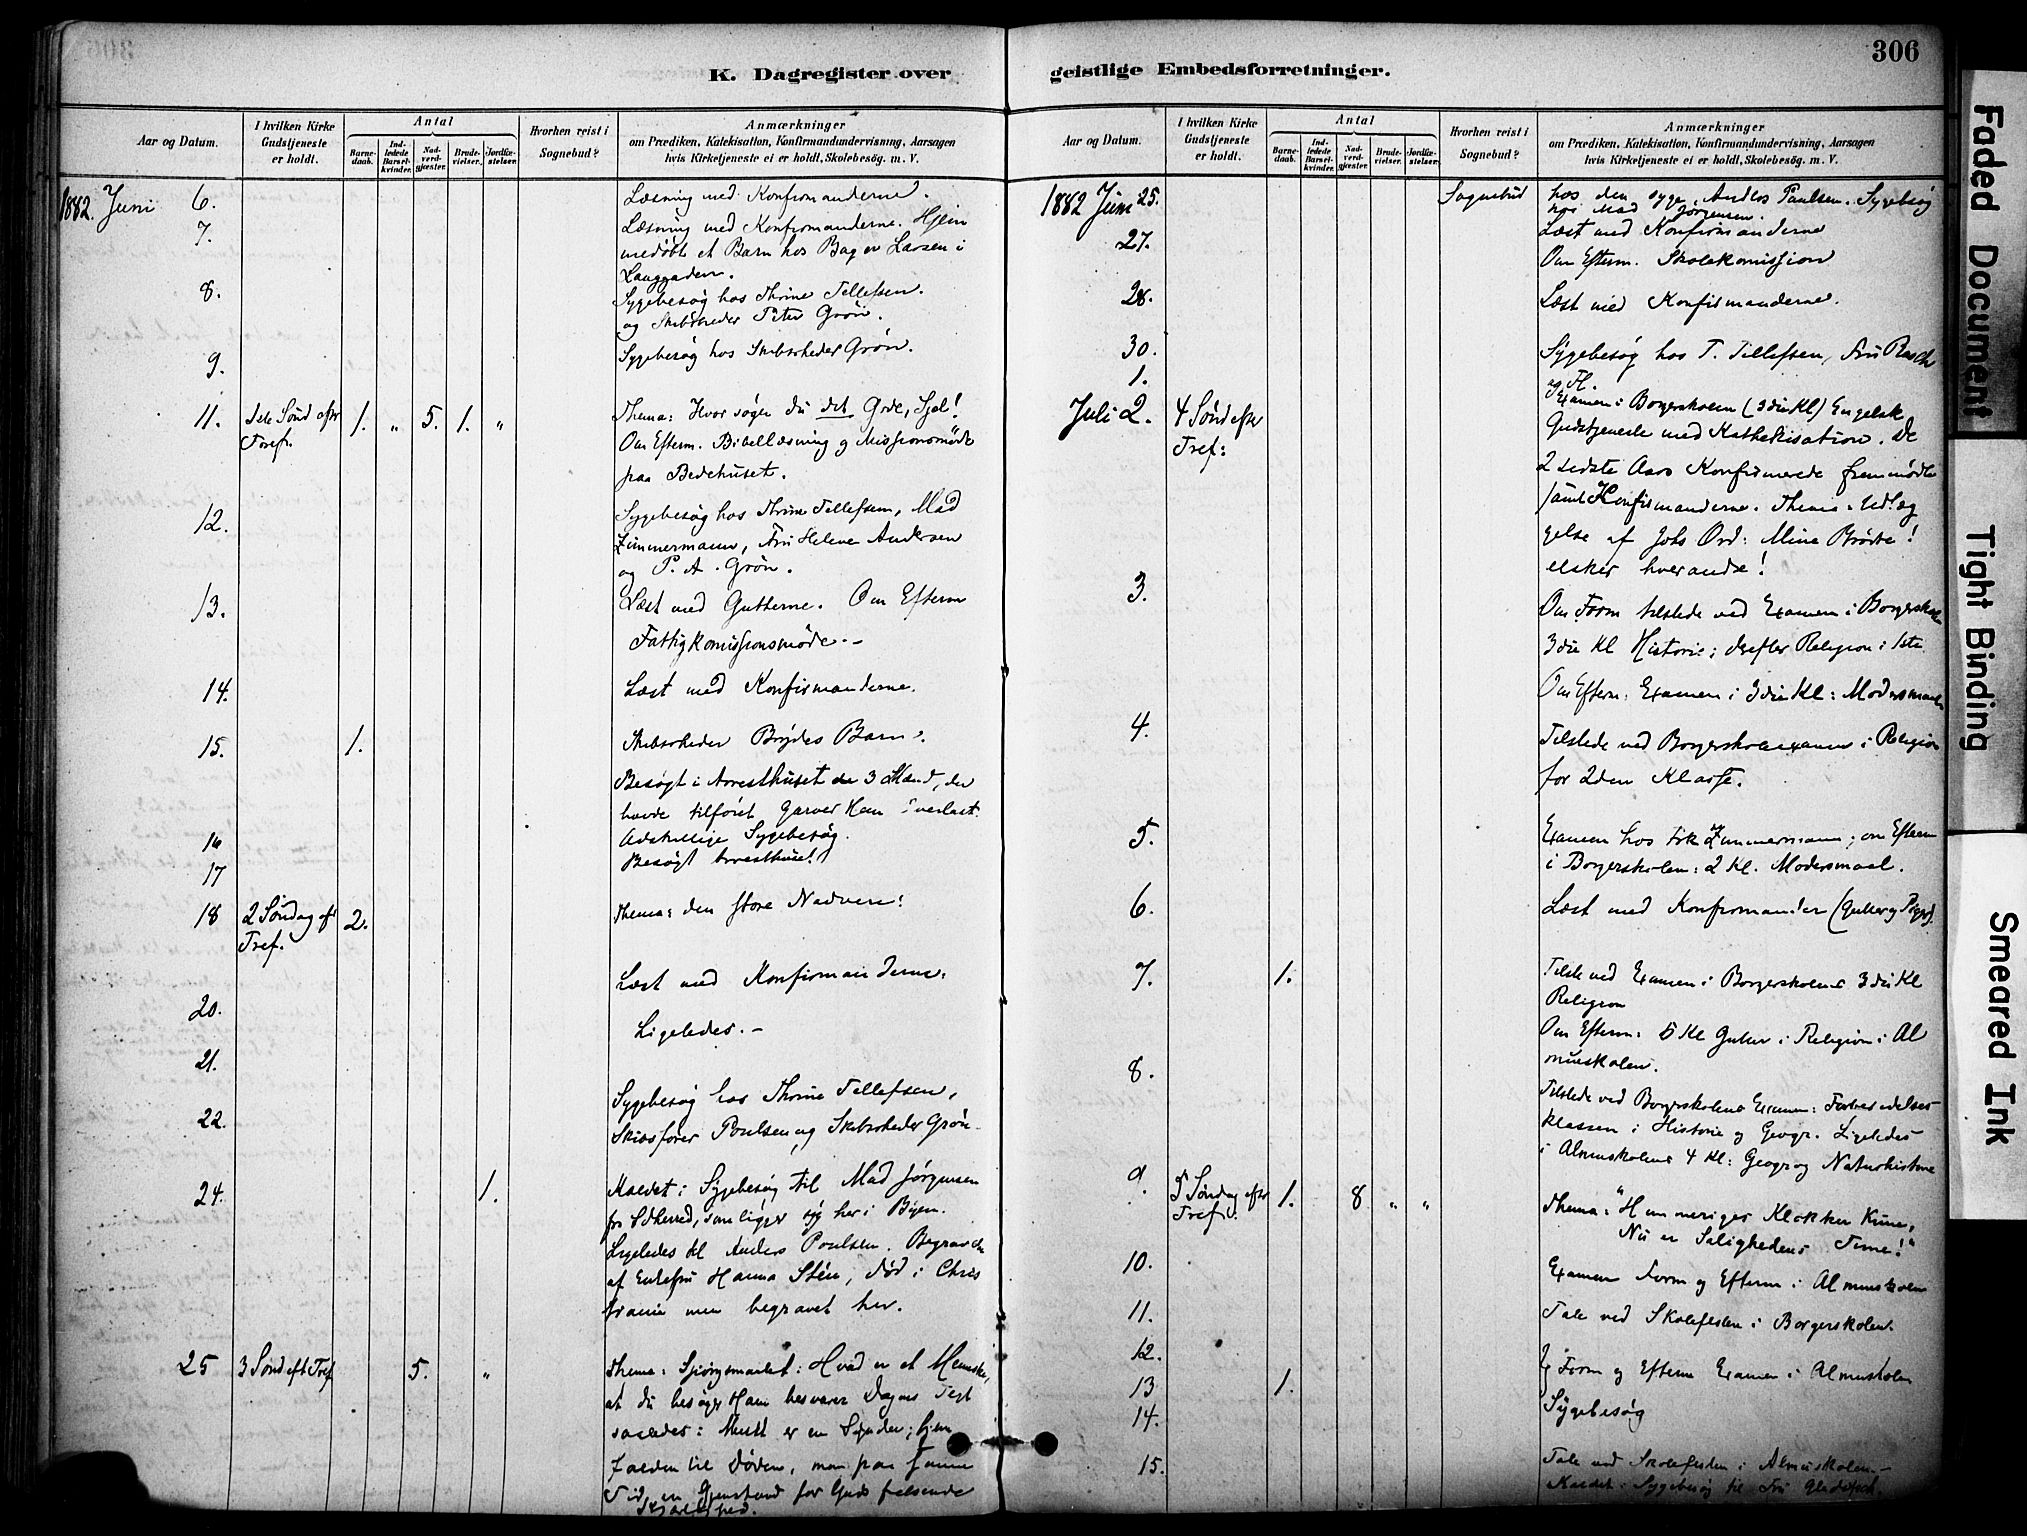 306
K. Dagregister over geistlige Embedsforretninger.
Aar og Datum.
I hvilken Kirke Gudstjeneste er holdt.
Antal
Barne-daab.
Ind-ledede Barsel-kvinder.
Nad-verd-gjester.
Brude-vielser.
Jordfæ-stelser.
Hvorhen reist i Sognebud?
Anmærkninger
om Prædiken, Katekisation, Konfirmandundervisning, Aarsagen
hvis Kirketjeneste ei er holdt, Skolebesög. m. V.
1882. Juni 6. Læsning med Konfirmanderne.
7. Læsning med Konfirmanderne. Hjem
medøbt et Barn hos Bager Larsen i
Langgaden.
8. Sygebesøg hos Thrine Tellefsen.
og Skibsreder Peter Grøn.
9. Sygebesøg hos Skibsrheder Grøn.
11. 1ste Sønd efter 1. „ 5. 1. „ Thema: Hvor søger du det Gode, Sjæl!
Tref. Om Efterm. Bibellæsning og Missionsmøde
paa Bedehuset.
12. Sygebesøg hos Thrine Tellefsen, Mad
Zimmermann, Fru Helene Andersen
og P. A. Grøn.
13. Læst med Gutterne. Om Efterm
Fattigkomissionsmøde. –
14. Læst med Konfirmanderne.
15. 1. Skibsrheder Brydes Barn.
Besøgt i Arresthuset de 3 Mænd, der
havde tilføiet Garver Ham Overlast.
16 Adskillige Sygebesøg.
17 Besøgt Arresthuset
18 2 Søndag eft 2. Thema: den store Nadvere:
Tref.
20. Læst med Konfirmanderne.
21. Ligeledes. –
22. Sygebesøg hos Thrine Tellefsen,
Skibsfører Poulsen og Skibsrheder Grøn
24. 1. Kaldet i Sygebesøg til Mad Jørgensen
fra Sdherred, som ligger syg her i Byen.
Ligeledes til Anders Poulsen. Begravelse
af Enkefru Hanna Stén, død i Chris
tiania men begravet her.
25 3 Sønd eft Tref 5. „ Thema: Spørgsmaalet: Hvad er et Menneske,
at du besøger Ham besvares Dagens Text
saaledes: Mskt er en Synder, hjem
falden til Døden, men paa samme
Tid en Gjenstand for Guds frelsende
Kjærlighed.
Aar og Datum.
I hvilken Kirke Gudstjeneste er holdt.
Antal
Barne-daab.
Ind-ledede Barsel-kvinder.
Nad-verd-gjester.
Brude-vielser.
Jordfæ-stelser.
Hvorhen reist i Sognebud?
Anmærkninger
om Prædiken, Katekisation, Konfirmandundervisning, Aarsagen
hvis Kirketjeneste ei er holdt, Skolebesög. m. V.
1882 Juni 25. Sognebud hos den syge Anders Paulsen. Sygebesøg
hos Mad Jørgensen.
27. Læst med Konfirmanderne
Om Efterm. Skolekomission
28. Læst med Konfirmanderne.
30. Sygebesøg hos T. Tellefsen, Fru Rasch
og Fl.
1. Examen i Borgerskolen (3die Kl) Engelsk
Juli 2. 4 Sønd efter Gudstjeneste med Kathekisation. De
Tref: 2 sidste Aars Konfirmerede fremmødte
samt Konfirmanderne. Thema: Udlæg
gelse af Johs Ord: Mine Brødre!
elsker hverandre!
3. Om Form tilstede ved Examen i Borgerskolen
3die Kl Historie; derefter Religion i 1ste
Om Efterm: Examen i 3die Kl: Modersmaal
4. Tilstede ved Borgerskoleexamen i Religion
for 2den Klasse.
5. Examen hos Frk Zimmermann; om Efterm
i Borgerskolen: 2 Kl. Modersmaal.
6. Læst med Konfirmander (Gutter og Piger).
7. 1. Tilste ved Examen i Borgerskolens 3die Kl
Religion
Om Efterm: 5 Kl Gutter i Religion i Al
mueskolen.
8. Tilstede ved Borgerskolens Examen: Forberedelses
klassen i Historie og Geogr. Ligeledes
i Almuskolens 4 Kl: Geogr og Naturhistorie
9. 5 Søndag efter 1. 8 „ „ Thema: "Hør meriges Klokker kime,
Tref. Nu er Salighedens Time!"
10. Examen Form og Efterm i Almuskolen
11. Tale ved Skolefesten i Borgerskolen.
12. Form og Efterm Examen i Almuskolen
13 1. Sygebesøg
14.
15. Tale ved Skolefesten i Almuskolen. –
Kaldet i Sygebesøg til Fru
Faded Document
Tight Binding
Smeared Ink